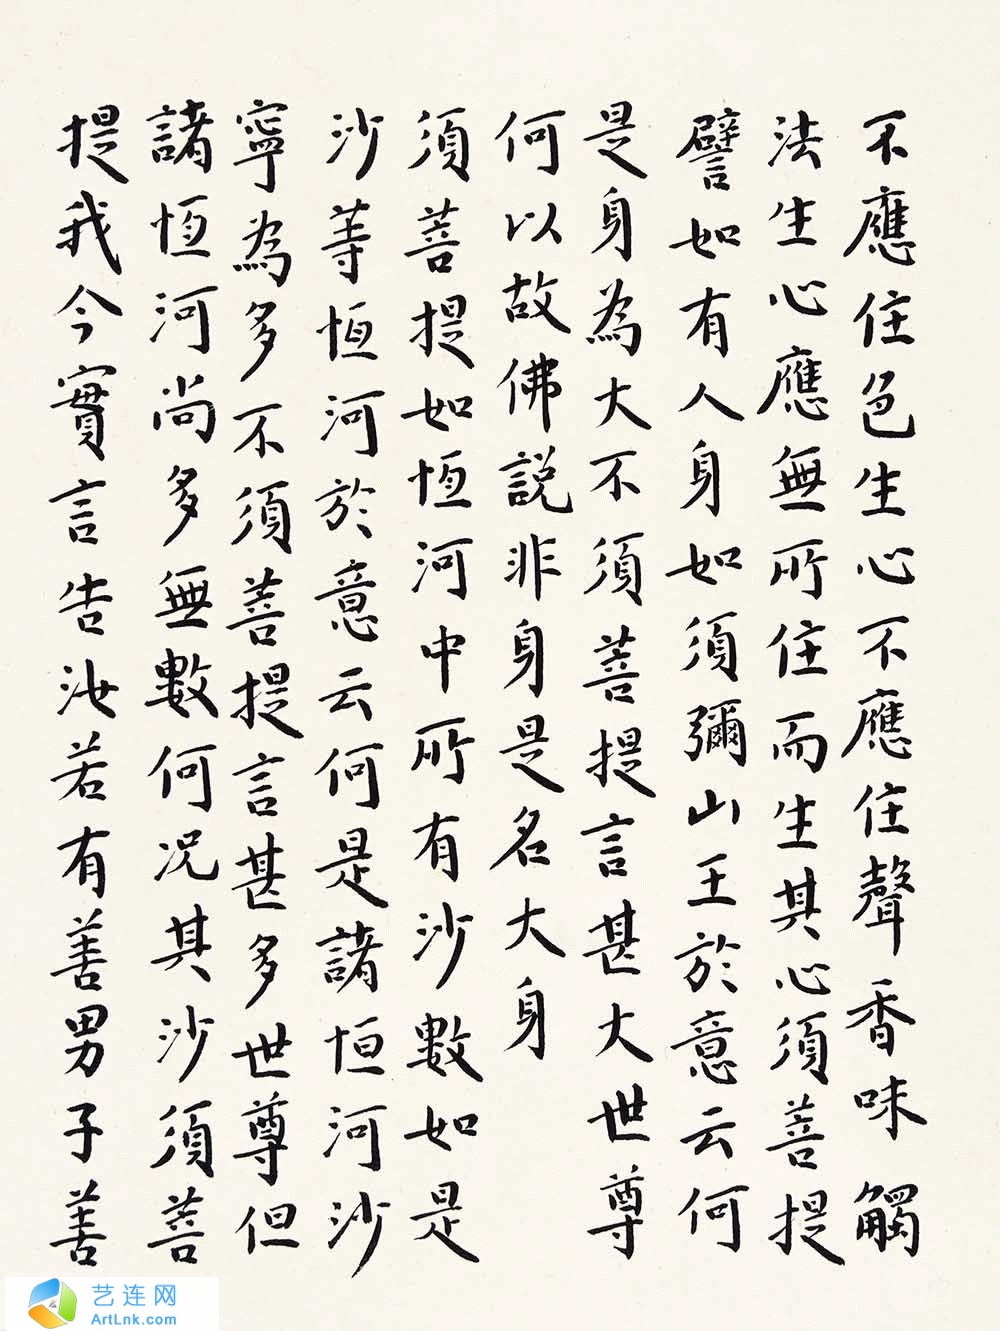 不應住色生心不應住聲香味觸
法生心應無所住而生其心須菩提
譬如有人身如須彌山王於意云何
是身為大不須菩提言甚大世尊
何以故佛説非身是名大身
須菩提如恆河中所有沙數如是
沙等恆河於意云何是諸恆河沙
寧為多不須菩提言甚多世尊但
諸恆河尚多無數何况其沙須菩
提我今實言告汝若有善男子善
艺连网
ArtLnk.com